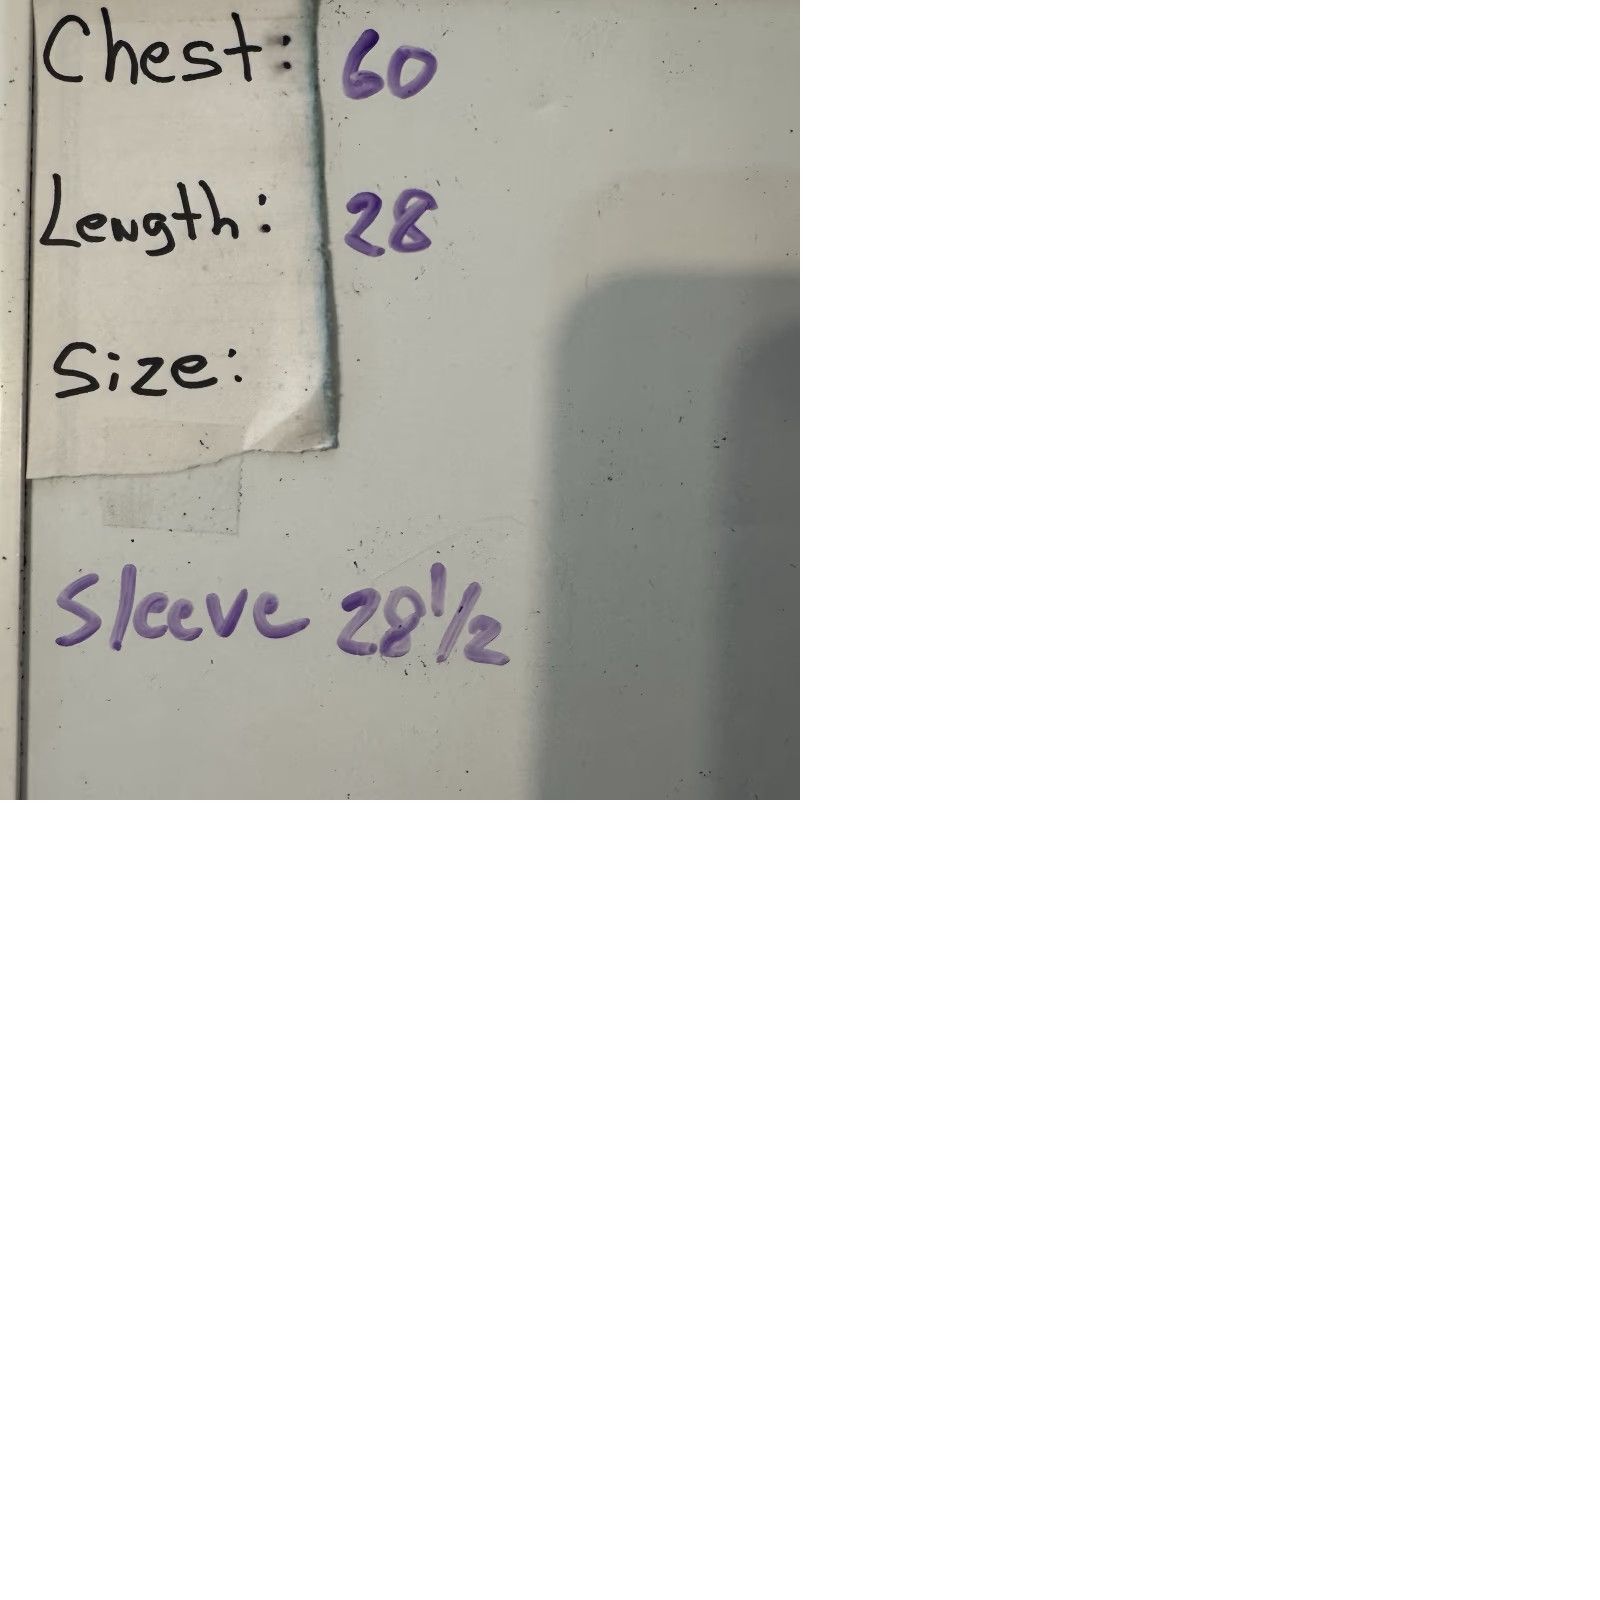 Chest: 60
Length: 28
Size:
Sleeve 28 1/2